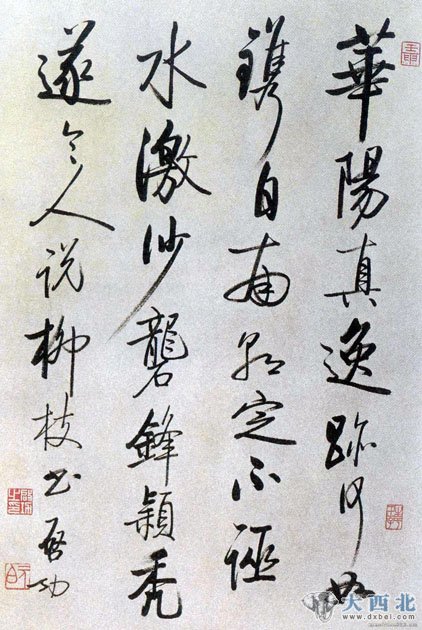 華陽真逸跡何如
鐫自南朝定不誣
水激沙礱鋒穎禿
遂令人說柳枝書 啟功
元白
大西北
www.dxbei.com